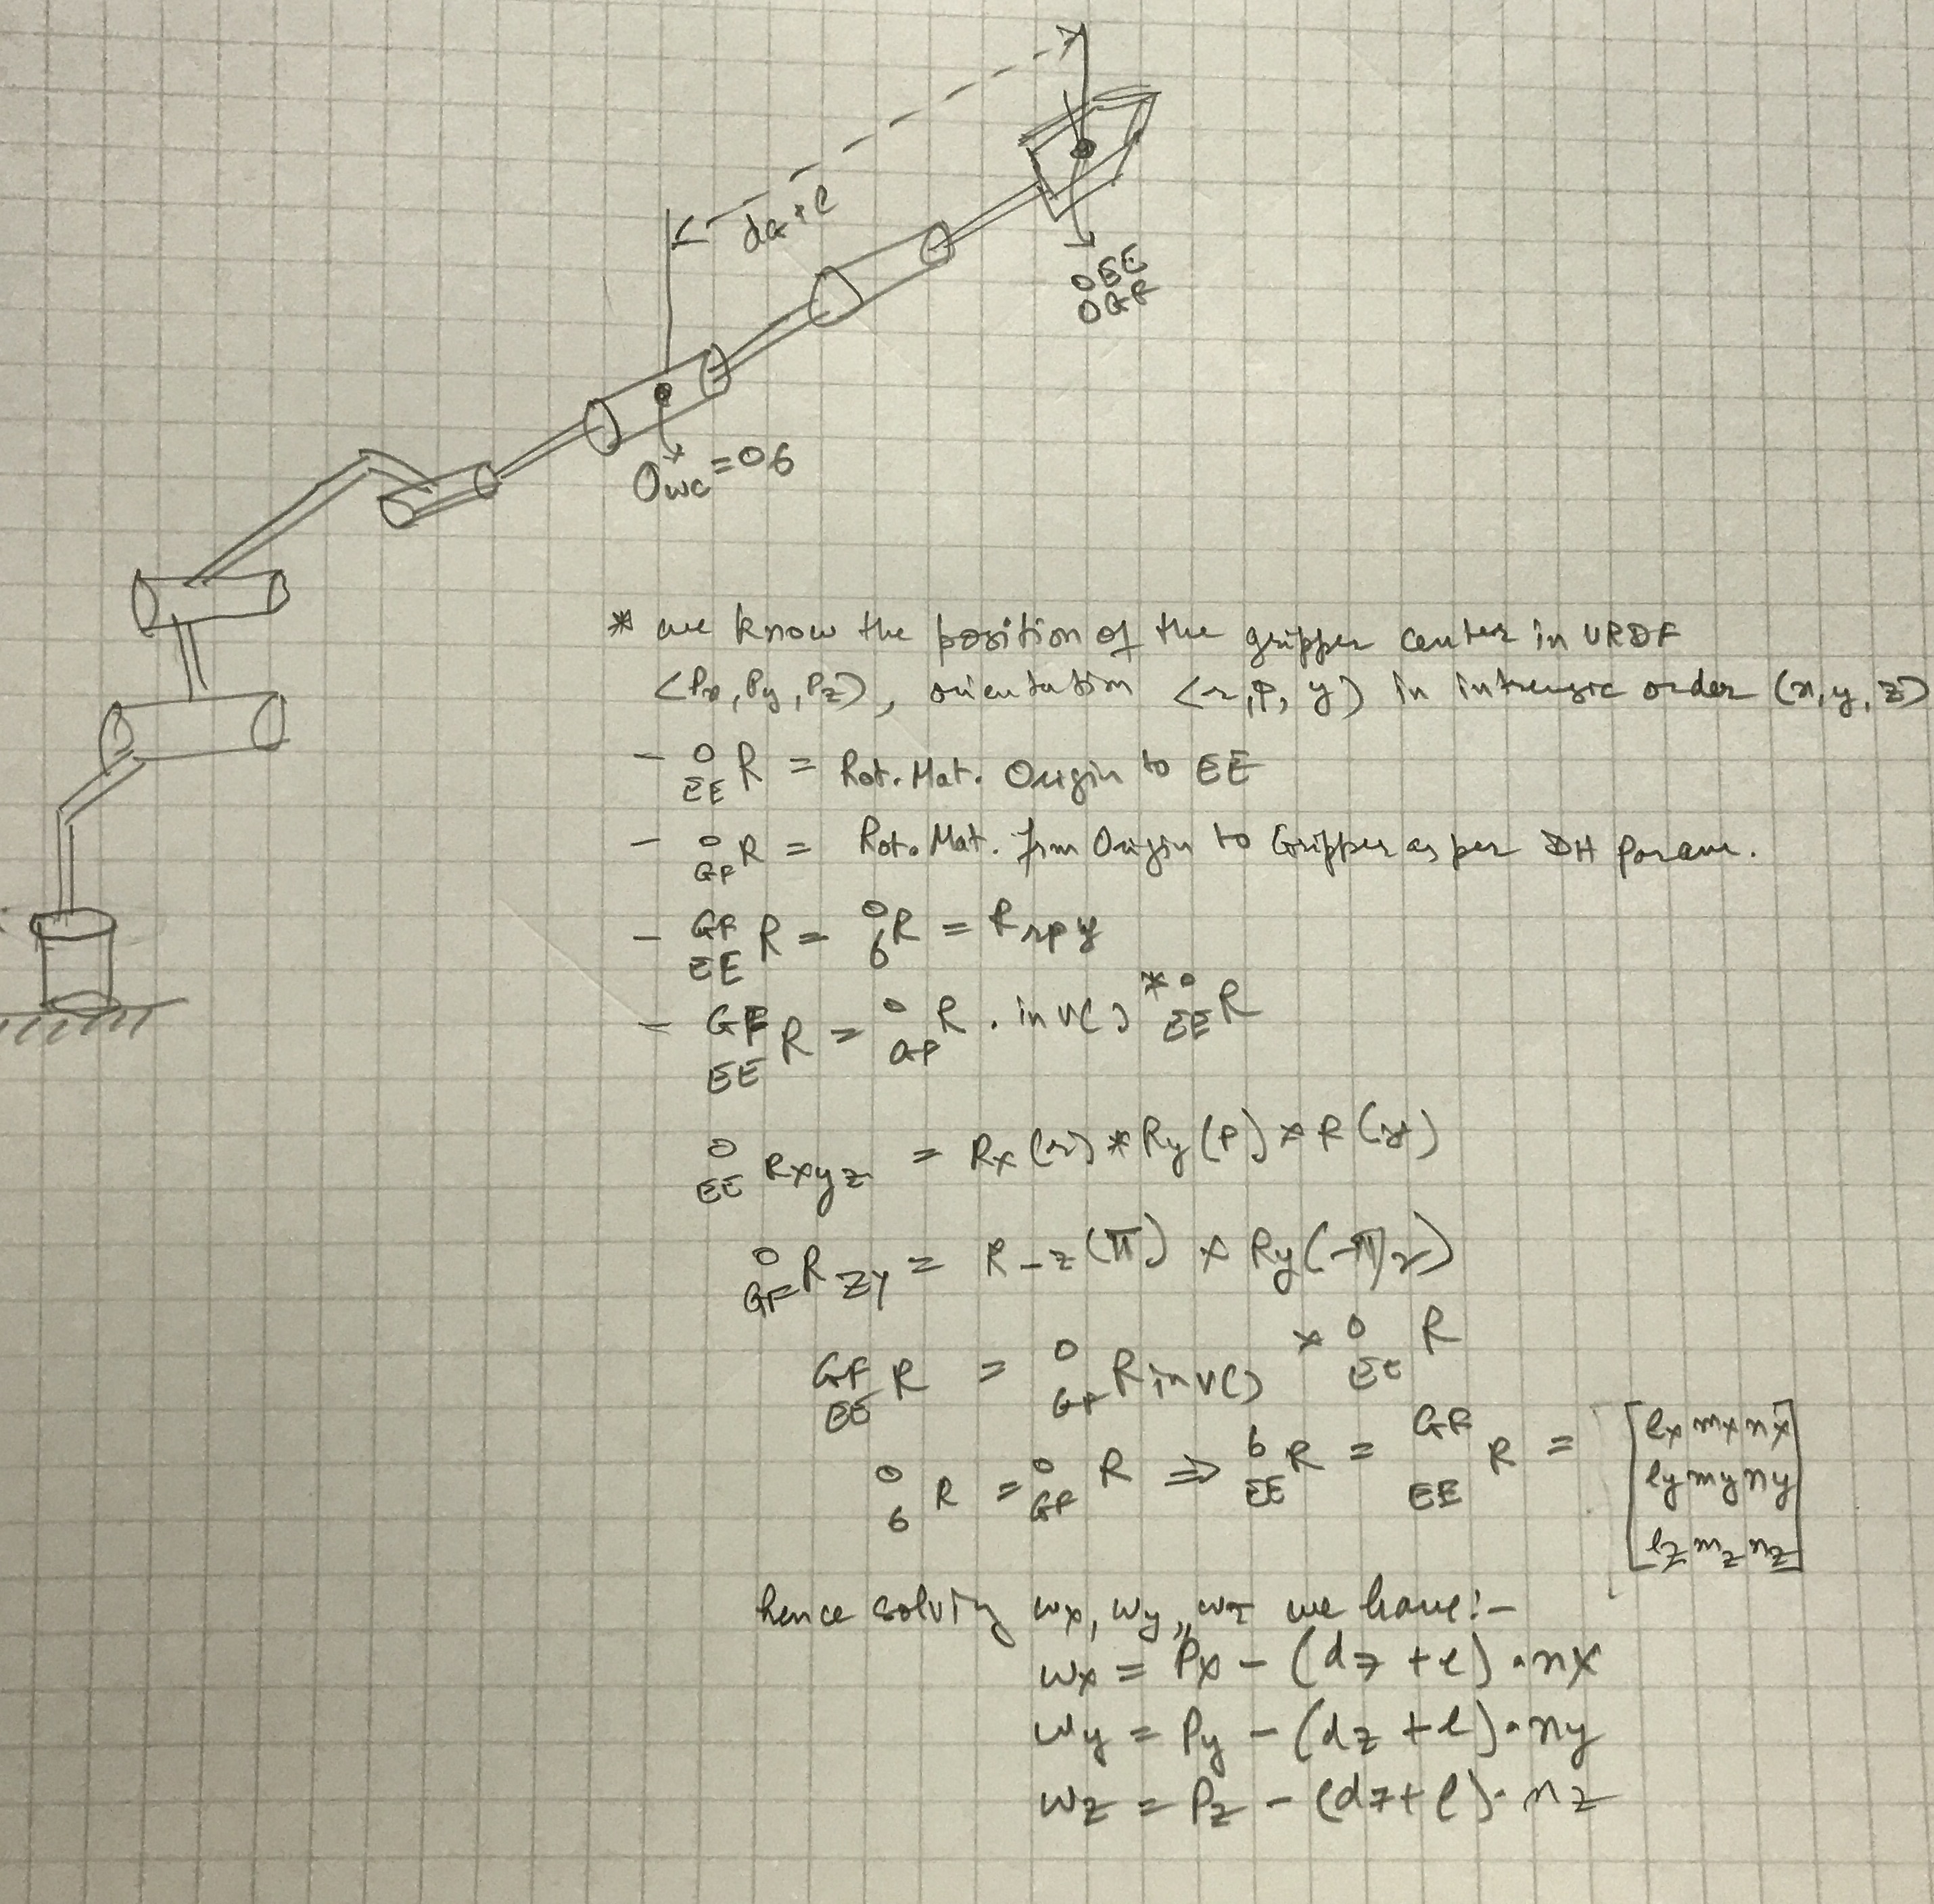 dG+l
OEE
OGF
Owc = O6
* we know the position of the gripper center in URDF
<Px, Py, Pz), orientation <r, P, y) in intrensic order (x, y, z)
- 0 EE R = Rot. Mat. Origin to EE
- 0 GF R = Rot. Mat. from Origin to Gripper as per DH param.
- GF EE R = 0 6 R = Rrpy
- GF EE R = 0 GF R . inv() * 0 EE R
0 EE Rxyz = Rx(r) * Ry(P) * R(y)
0 GF R ZY = R-z(π) * Ry(-π/2)
GF EE R = 0 GF R inv() * 0 EE R
0 6 R = 0 GF R ⇒ 6 EE R = GF EE R = [lx mx nx
ly my ny
lz mz nz]
hence solving wx, wy, wz we have:-
wx = Px - (d7 + l) · nx
wy = Py - (d7 + l) · ny
wz = Pz - (d7 + l) · nz